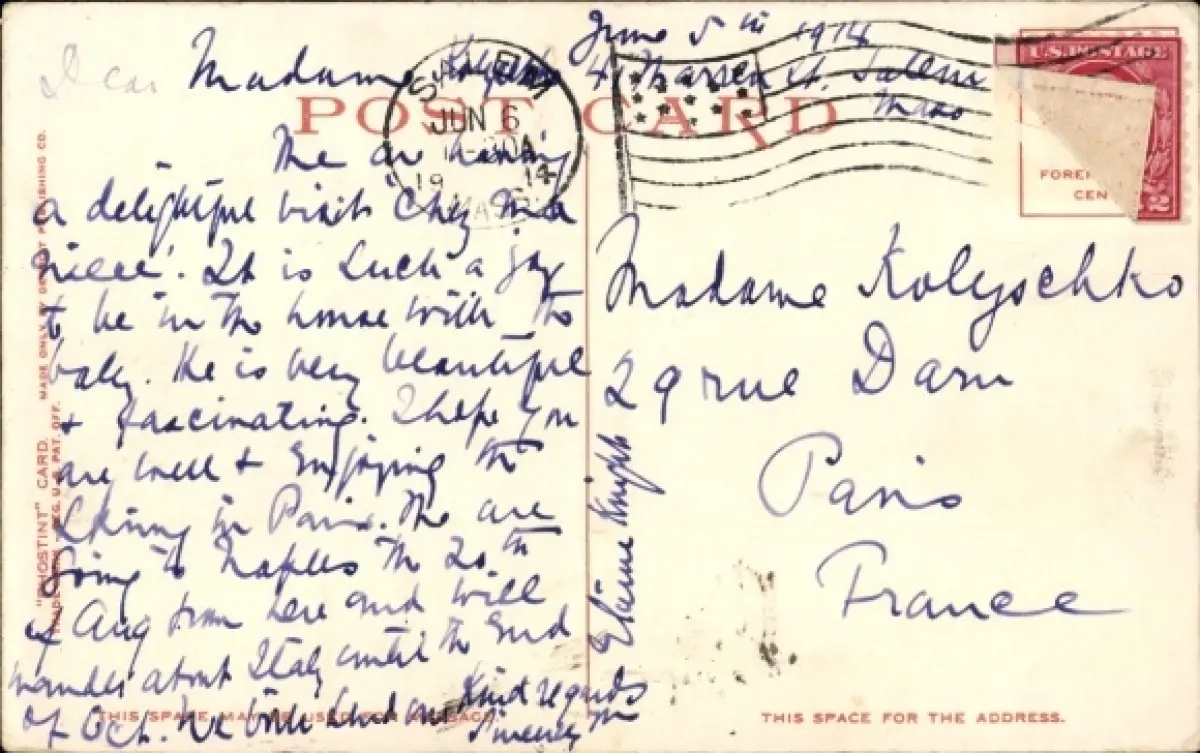 June 5th 1914
Dear Madame 4 Warren St. Salem
Mass
POST CARD
SALEM
JUN 6
19 14
MASS
U.S. POSTAGE
FOREI
CEN
2
We are having
a delightful visit 'Chez ma
niece'. It is such a joy
to be in the house with the
baby. He is very beautiful
& fascinating. I hope you
are well & enjoying the
in Paris. We are
going to Naples the 20th
of Aug from here and will
wander about Italy until the end
of Oct. We both send our kind regards
Sincerely yrs
Elaine Knight
Madame Kolyschko
29 rue Daru
Paris
France
"PHOSTINT" CARD. MADE ONLY BY DETROIT PUBLISHING CO.
TRADE MARK REG. U.S. PAT. OFF.
THIS SPACE MAY BE USED FOR MESSAGE.
THIS SPACE FOR THE ADDRESS.